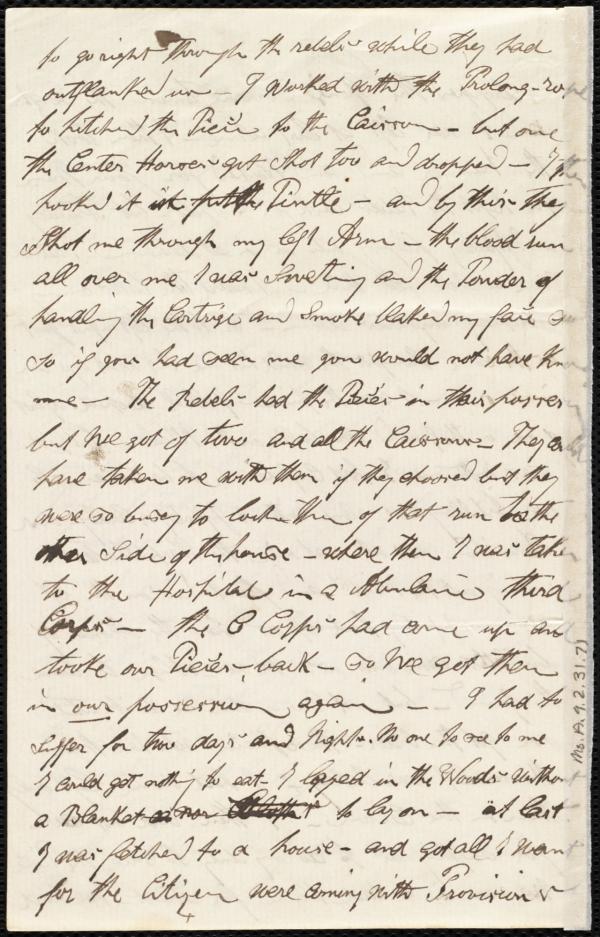 to go right through the rebels while they had
outflanked us - I worked with the Prolong-rope
to hitched the Piece to the Caisson - but one
the Center Horses got Shot too and dropped - I then
hooked it Pintle - and by this they
Shot me through my left Arm - the blood run
all over me I was Sweting and the Powder of
handling the Cartrige and Smoke Blaked my face
so if you had seen me you would not have
me - The Rebels had the Pieces in their posses
but we got of two and all the Caissons - They
have taken me with them if they choosed but they
were so busey to of that run to the
other Side of the house - where then I was taken
to the Hospital in a Abulance third
Corps - the 6 Corps had come up and
tooke our Pieces back - so we got them
in our possession again - I had to
Suffer for two days and Nights. No one to see to me
I could get nothing to eat - I layed in the Woods without
a Blanket or nor to lay on - at last
I was fetched to a house - and got all I want
for the Citizen were coming with Provisions
Ms. A. 9. 2. 31. 7)